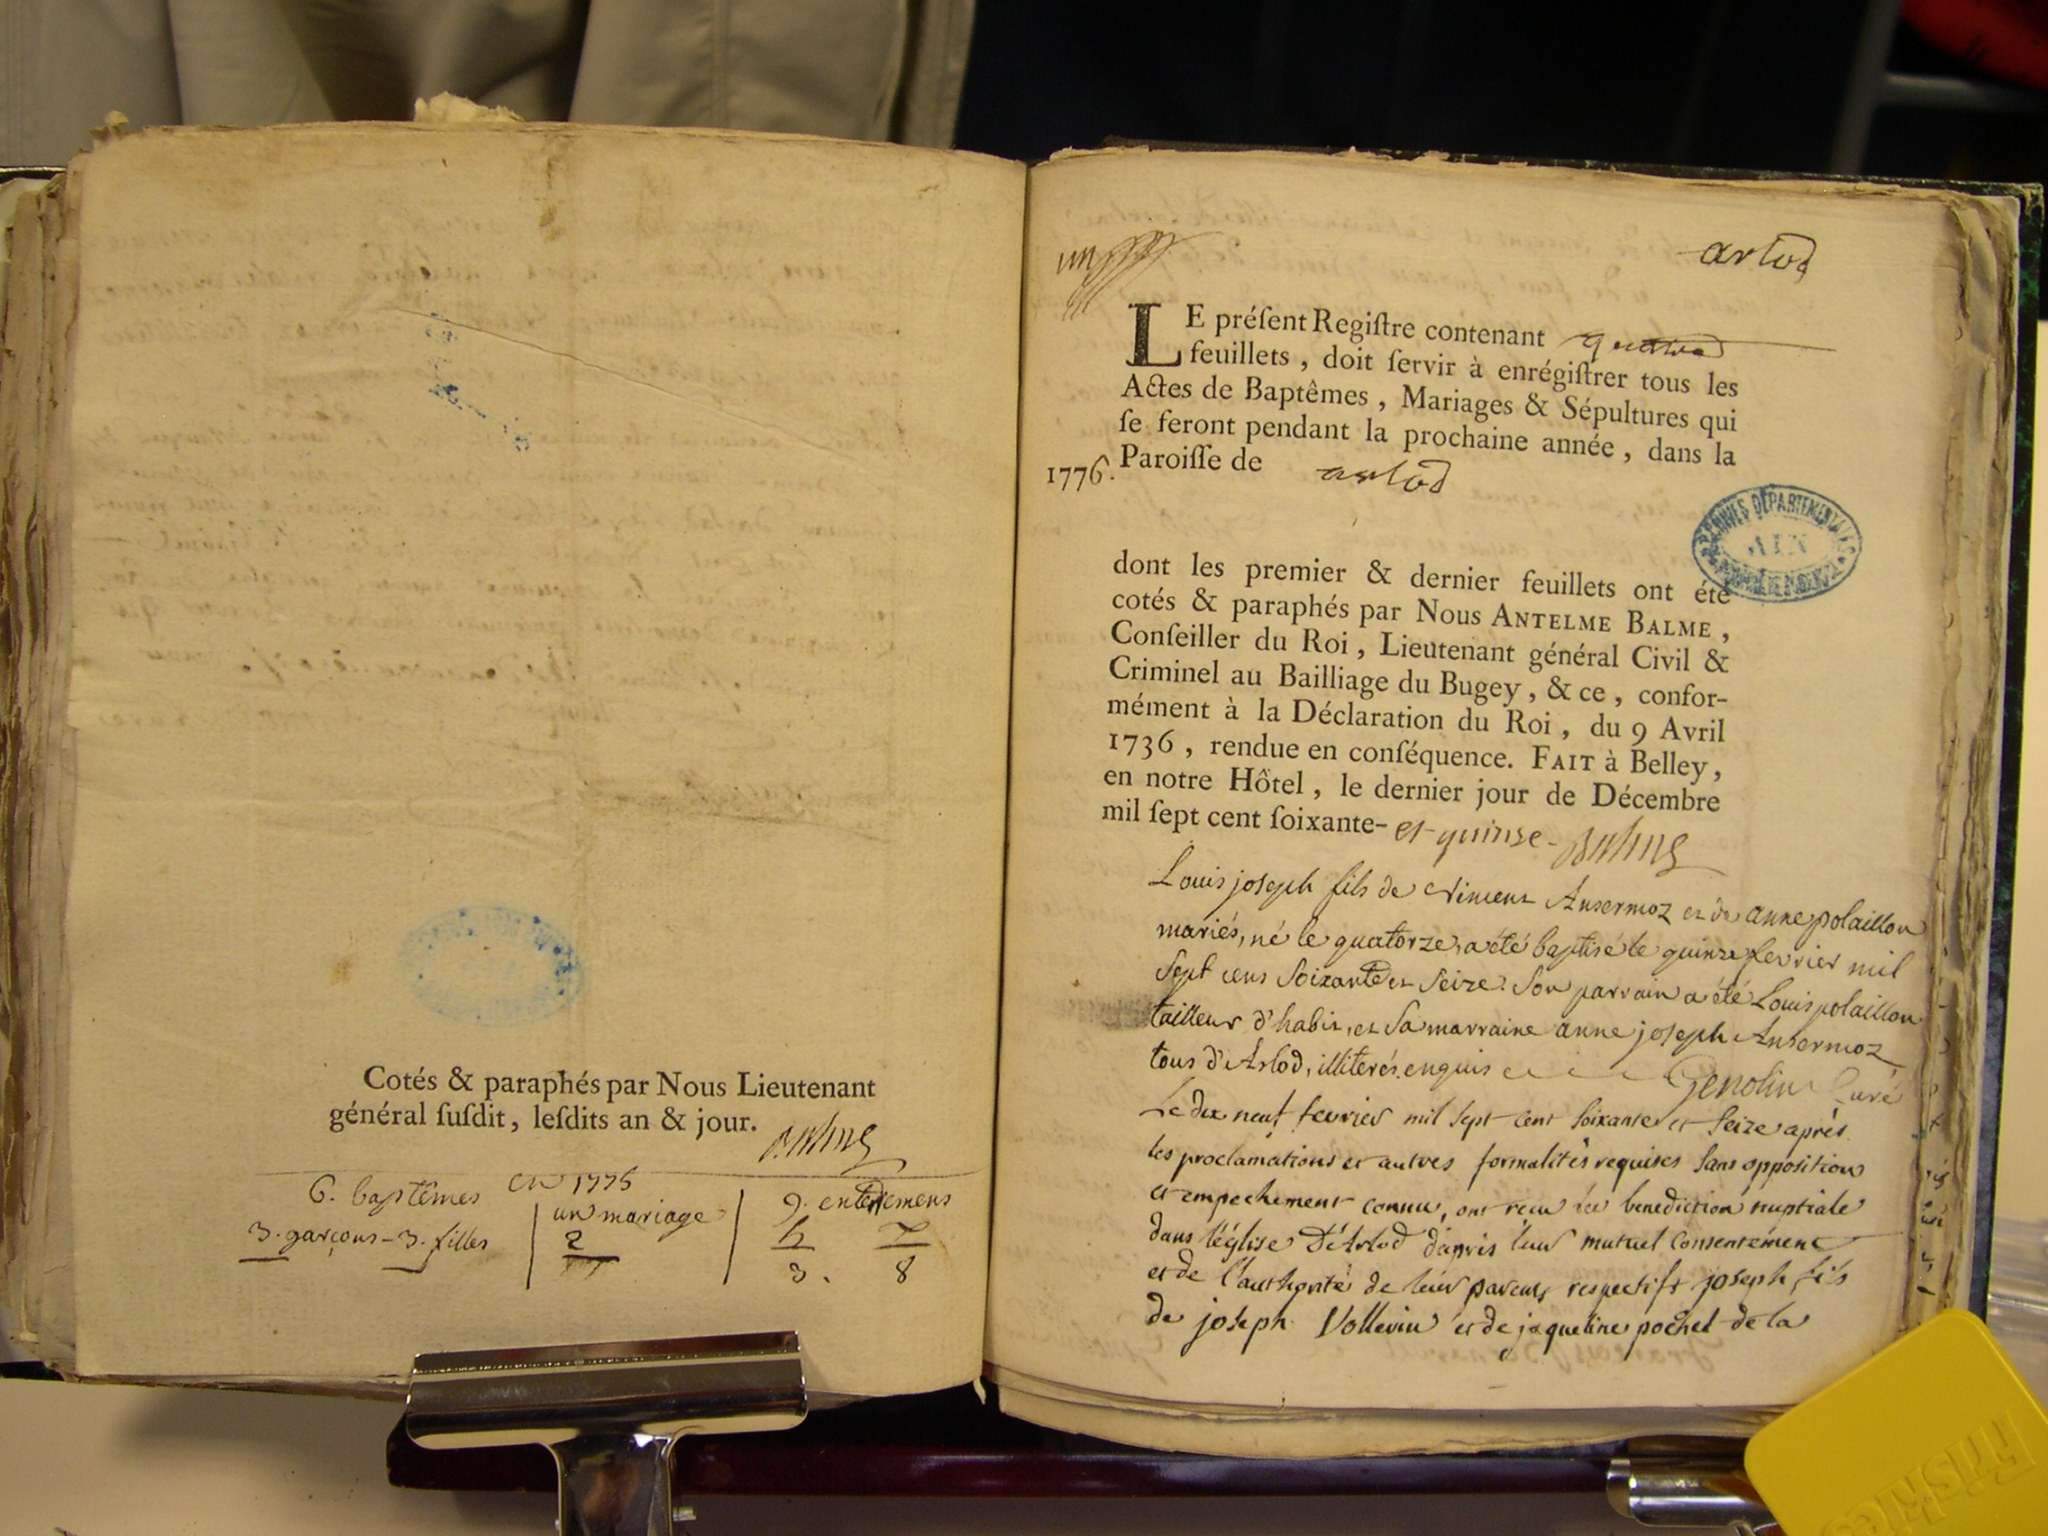 Cotés & paraphés par Nous Lieutenant
général ſuſdit, leſdits an & jour.
Balme
6. baptêmes en 1775
3. garçons - 3. filles
un mariage
2
9. enterremens
h
3.
8
un
arlod
LE préſent Regiſtre contenant quatre
feuillets, doit ſervir à enrégiſtrer tous les
Actes de Baptêmes, Mariages & Sépultures qui
ſe feront pendant la prochaine année, dans la
1776. Paroiſſe de arlod
ARCHIVES DÉPARTEMENTALES
AIN
dont les premier & dernier feuillets ont été
cotés & paraphés par Nous ANTELME BALME,
Conſeiller du Roi, Lieutenant général Civil &
Criminel au Bailliage du Bugey, & ce, confor-
mément à la Déclaration du Roi, du 9 Avril
1736, rendue en conſéquence. FAIT à Belley,
en notre Hôtel, le dernier jour de Décembre
mil ſept cent ſoixante- et quinze - Balme
Louis joseph fils de vincent Ansermoz et de anne polaillon
mariés, né le quatorze, a été baptisé le quinze fevrier mil
Sept cens Soixante et Seize. Son parrain a été Louis polaillon
tailleur d'habit, et Sa marraine anne joseph Ansermoz
tous d'Arlod, illiterés enquis Genolin Curé
Le dix neuf fevrier mil sept cent soixante et seize après
les proclamations et autres formalités requises sans opposition
et empechement connu, ont recu la benediction nuptiale
dans l'église D'Arlod d'apris leur mutuel consentement
et de l'authorité de leur parens respectifs joseph fils
de joseph Vollerin et de jaqueline pochet de la
Friskies